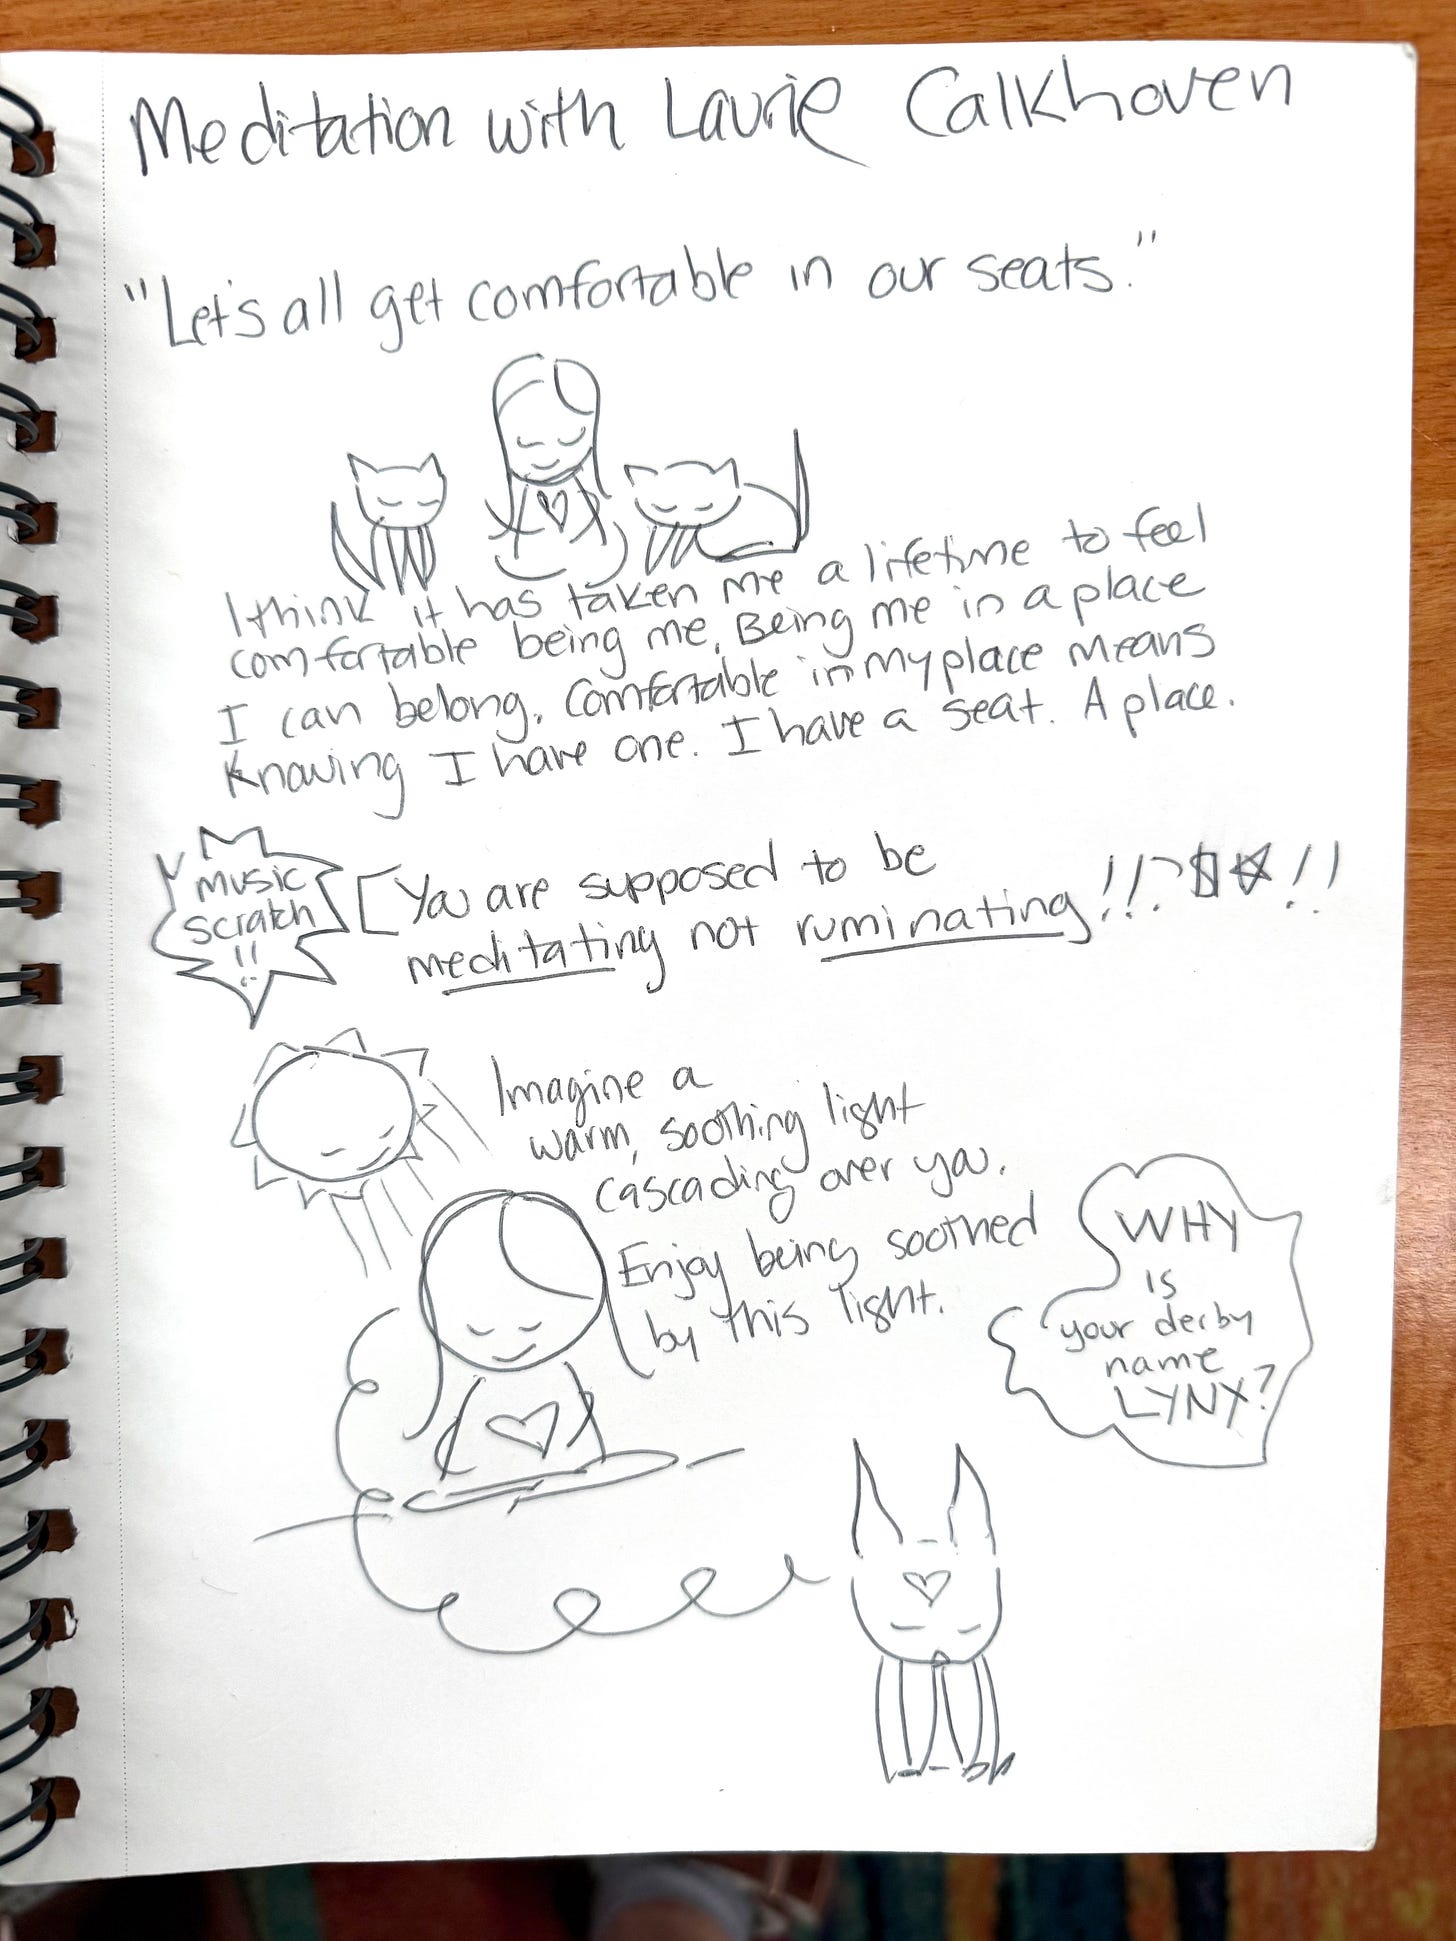 Meditation with Laurie Calkhoven
"Let's all get comfortable in our seats."
I think it has taken me a lifetime to feel
comfortable being me. Being me in a place
I can belong. Comfortable in my place means
knowing I have one. I have a seat. A place.
Music
Scratch
!!
[You are supposed to be
meditating not ruminating!!?$*!!
Imagine a
warm, soothing light
cascading over you.
Enjoy being soothed
by this light.
WHY
is
your derby
name
LYNX?